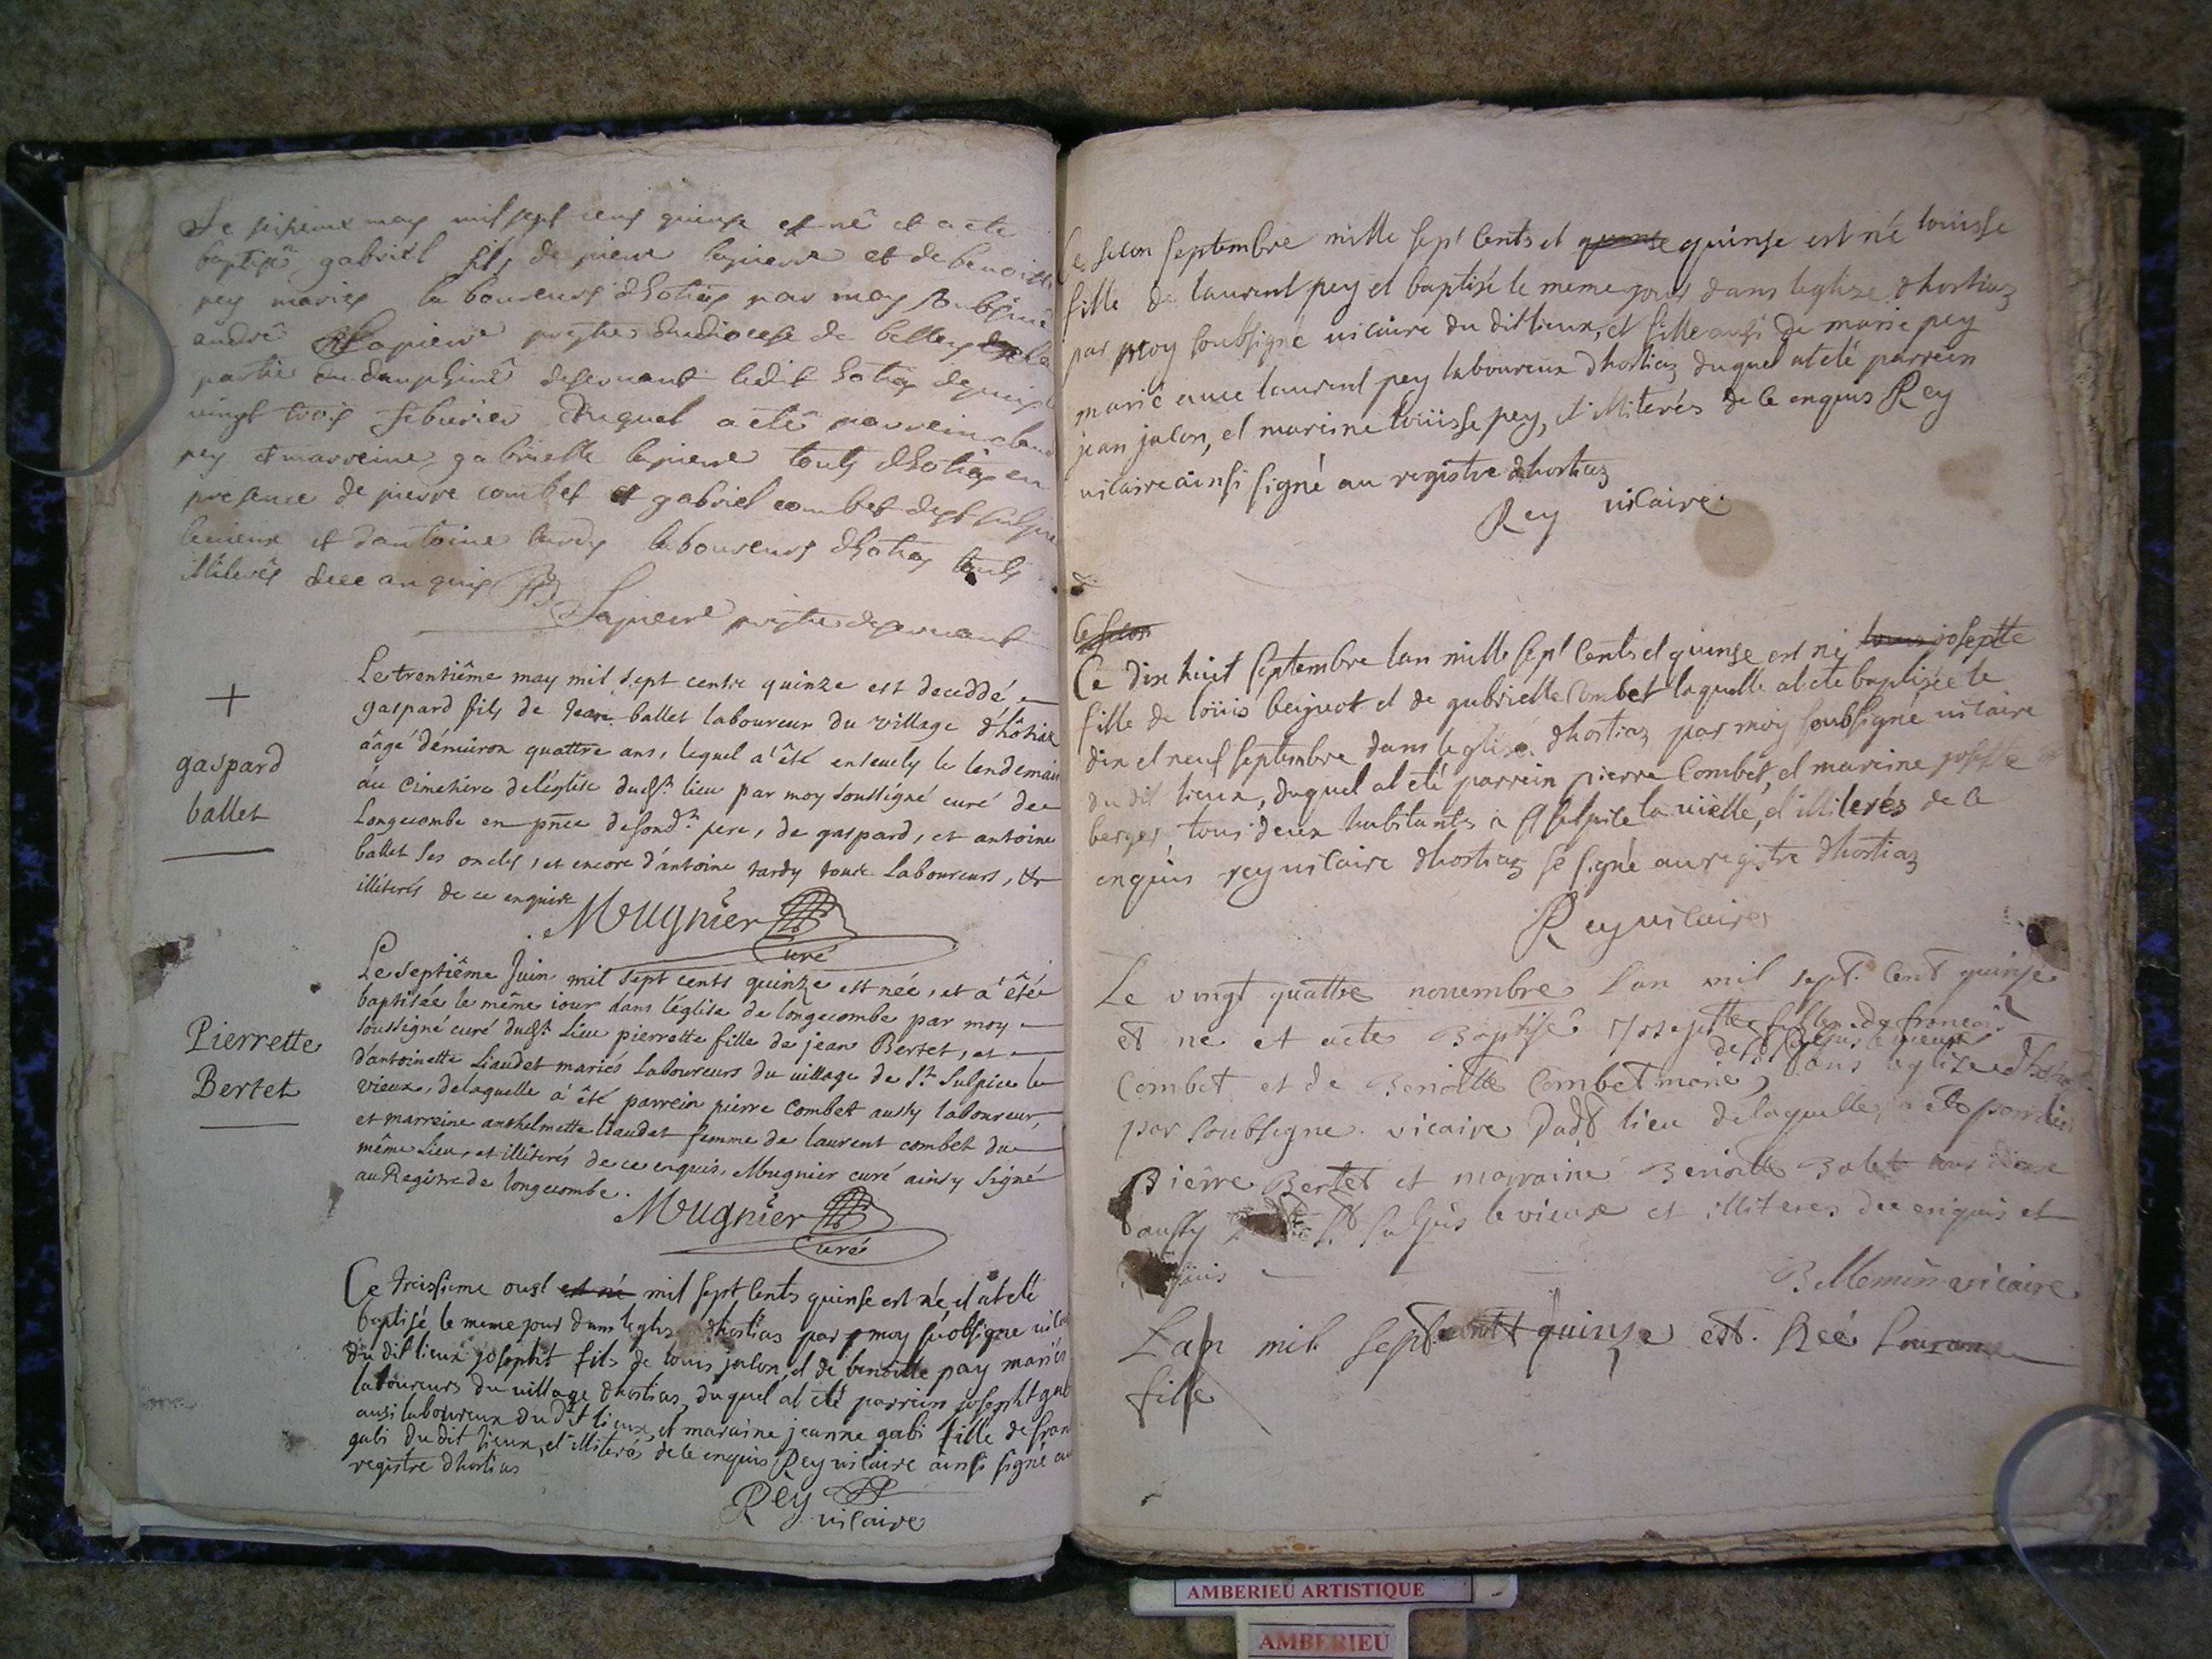 Le sisieme may mil sept cens quinse est né et a ete
baptisé gabriel fils de pierre lapierre et de benoitte
pey mariés laboureurs dhotiaz par moy soubsiné
andré Lapierre prestre du diocese de belley de la
partie du dauphiné deservant ledit hotiaz depuis le
vingt trois febvrier duquel a eté parrein claude
pey et marreine gabrielle lapierre touts dhotiaz en
presence de pierre combet et gabriel combet de st sulpice
levieux et dantoine tardy laboureurs dhotiaz touts
illiterés de ce anquis
Lapierre prestre deservant
+
gaspard
ballet
Le trentiême may mil sept cents quinze est deceddé
gaspard fils de Jean ballet laboureur du village d'hôtiaz
âagé d'énuiron quattre ans, lequel a' êté enseuely le lendemain
au Cimetiere del'église dudt. lieu par moy soussigné curé de
Longecombe en pñce desond.t pere, de gaspard, et antoine
ballet ses oncles, et encore d'antoine tardy touts Laboureurs, &
illiterés de ce enquis
Mugnier
Curé
Pierrette
Bertet
Le septiême Juin mil sept cents quinze est née, et a' êtée
baptisée le même iour dans l'église de longecombe par moy
soussigné curé dudt. Lieu pierrette fille de jean Bertet, et
d'antoinette Liaudet mariés Laboureurs du village de St. Sulpice le
vieux, delaquelle a' êté parrein pierre Combet aussy laboureur,
et marreine anthelmette liaudet femme de laurent combet du
même Lieu, et illiterés de ce enquis, Mugnier curé ainsy signé
au Registre de longecombe.
Mugnier
Curé
Ce troissieme oust est né mil sept Cents quinse est né et at eté
baptisé le meme jour dans leglise dhostias par moy soubsigne vicai
du dit lieux josepht fils de louis julon, et de benoitte pay mariés
laboureurs du village dhostias duquel at eté parrein josepht gabi
ausi laboureux du dit lieux, et maraine jeanne gabi fille de fran
gabi du dit lieux, et illiterés de ce enquis Rey vicaire ainsi signé au
registre dhostias
Rey
vicaire
Ce selon Septembre mille sept Cents et quanse quinse est né louisse
fille de laurent pey et baptisé le meme jour dans leglize dhostiaz
par moy soubsigné vicaire du dit lieux, et fille ausi de marie pey
marié avec laurent pey laboureux dhostiaz duquel at eté parrein
jean julon, et mareine loüisse pey, et illiterés de ce enquis Rey
vicaire ainsi signé au registre dhostiaz
Rey vicaire
Ce selon
Ce dixhuit Septembre lan mille sept Cents et quinse est né louis josephte
fille de loüis beignot et de gabrielle Combet laquelle at ete baptisée le
dix et neuf septembre dans leglise dhostiaz par moy soubsigné vicaire
du dit lieux, duquel at eté parrein pierre Combet, et mareine
berger tous deux habitants a st sulpice la vielle, et illiterés de ce
enquis rey vicaire dhostiaz se signé au registre dhostiaz
Rey vicaire
Le vingt quattre nouembre l'an mil sept. Cent quinse
est ne et a ete Baptisé Josephtte fille de francois
de st sulpis le vieux
Combet et de Benoitte Combet marie, dans leglize dhotia
par soubsigne vicaire dudt lieu delaquelle a ete parrien
Pierre Bertet et marraine Benoitte Balet tous deux
d'aussy St Sulpis le vieux et illiteres de ce enquis et
Billemin vicaire
Lan mil sept cent quinze est Née
fille
AMBERIEU ARTISTIQUE
AMBERIEU